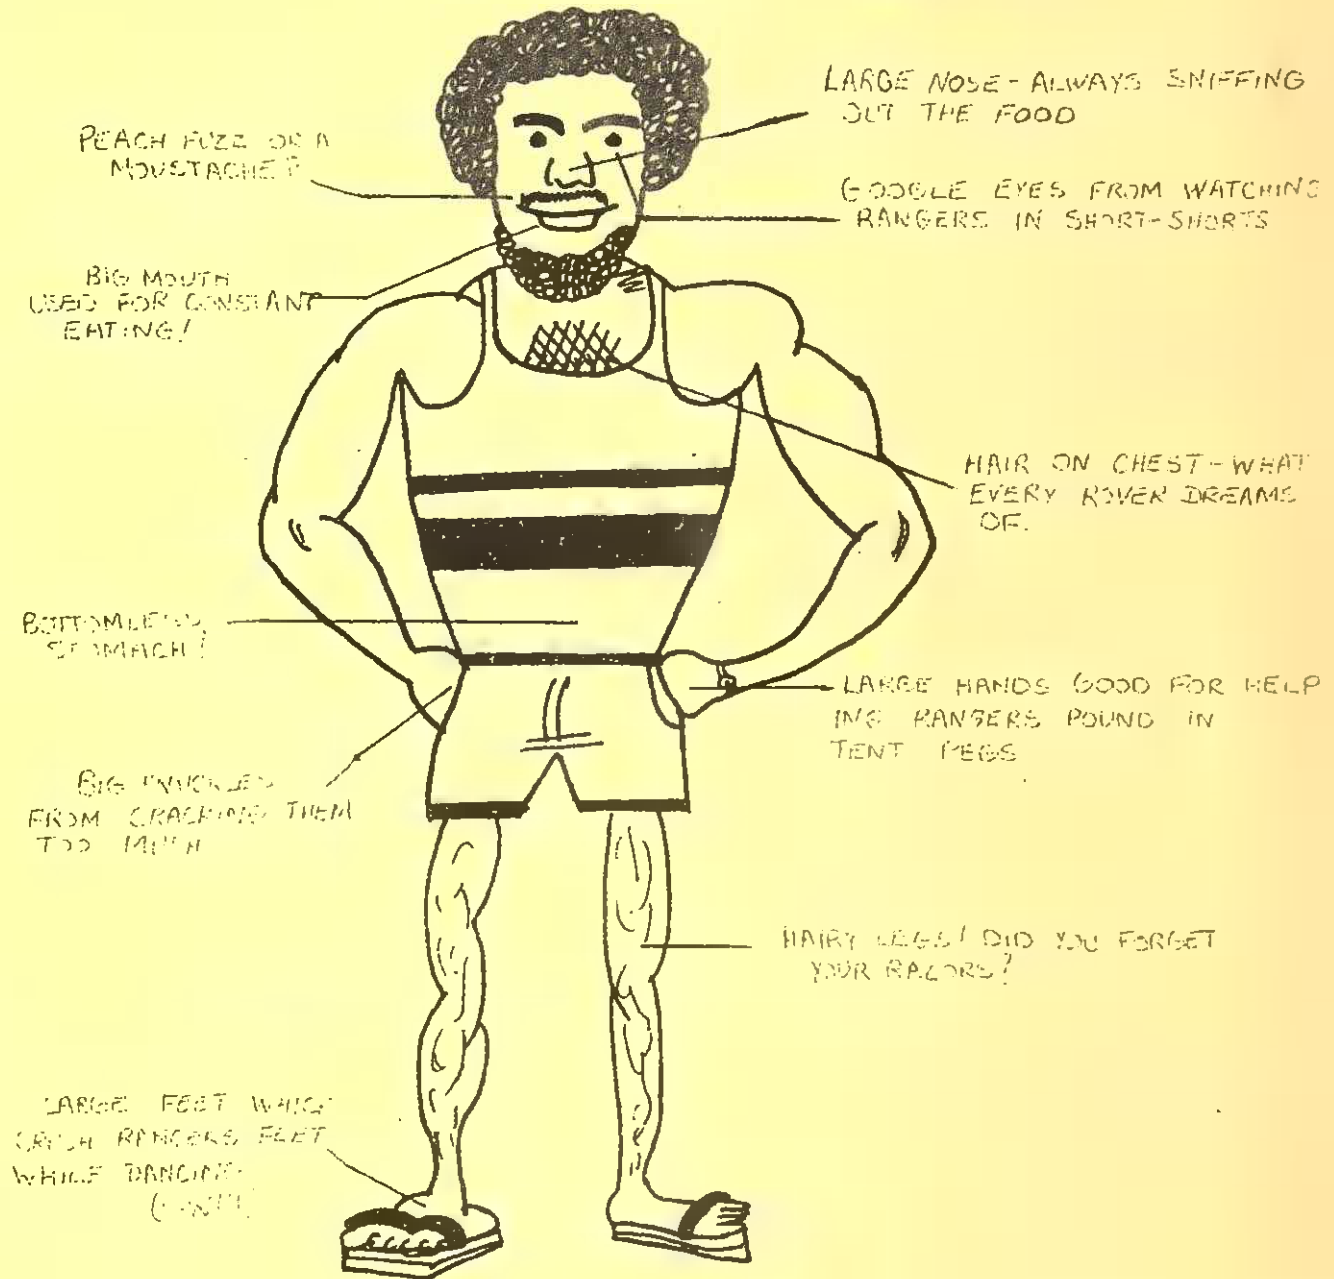 LARGE NOSE - ALWAYS SNIFFING
OUT THE FOOD
PEACH FUZZ OR A
MOUSTACHE?
GOOGLE EYES FROM WATCHING
RANGERS IN SHORT-SHORTS
BIG MOUTH
USED FOR CONSTANT
EATING!
HAIR ON CHEST - WHAT
EVERY ROVER DREAMS
OF.
BOTTOMLESS
STOMACH!
LARGE HANDS GOOD FOR HELP
ING RANGERS POUND IN
TENT PEGS
BIG KNUCKLES
FROM CRACKING THEM
TOO MUCH
HAIRY LEGS! DID YOU FORGET
YOUR RAZORS?
LARGE FEET WHICH
CRUSH RANGERS FEET
WHILE DANCING